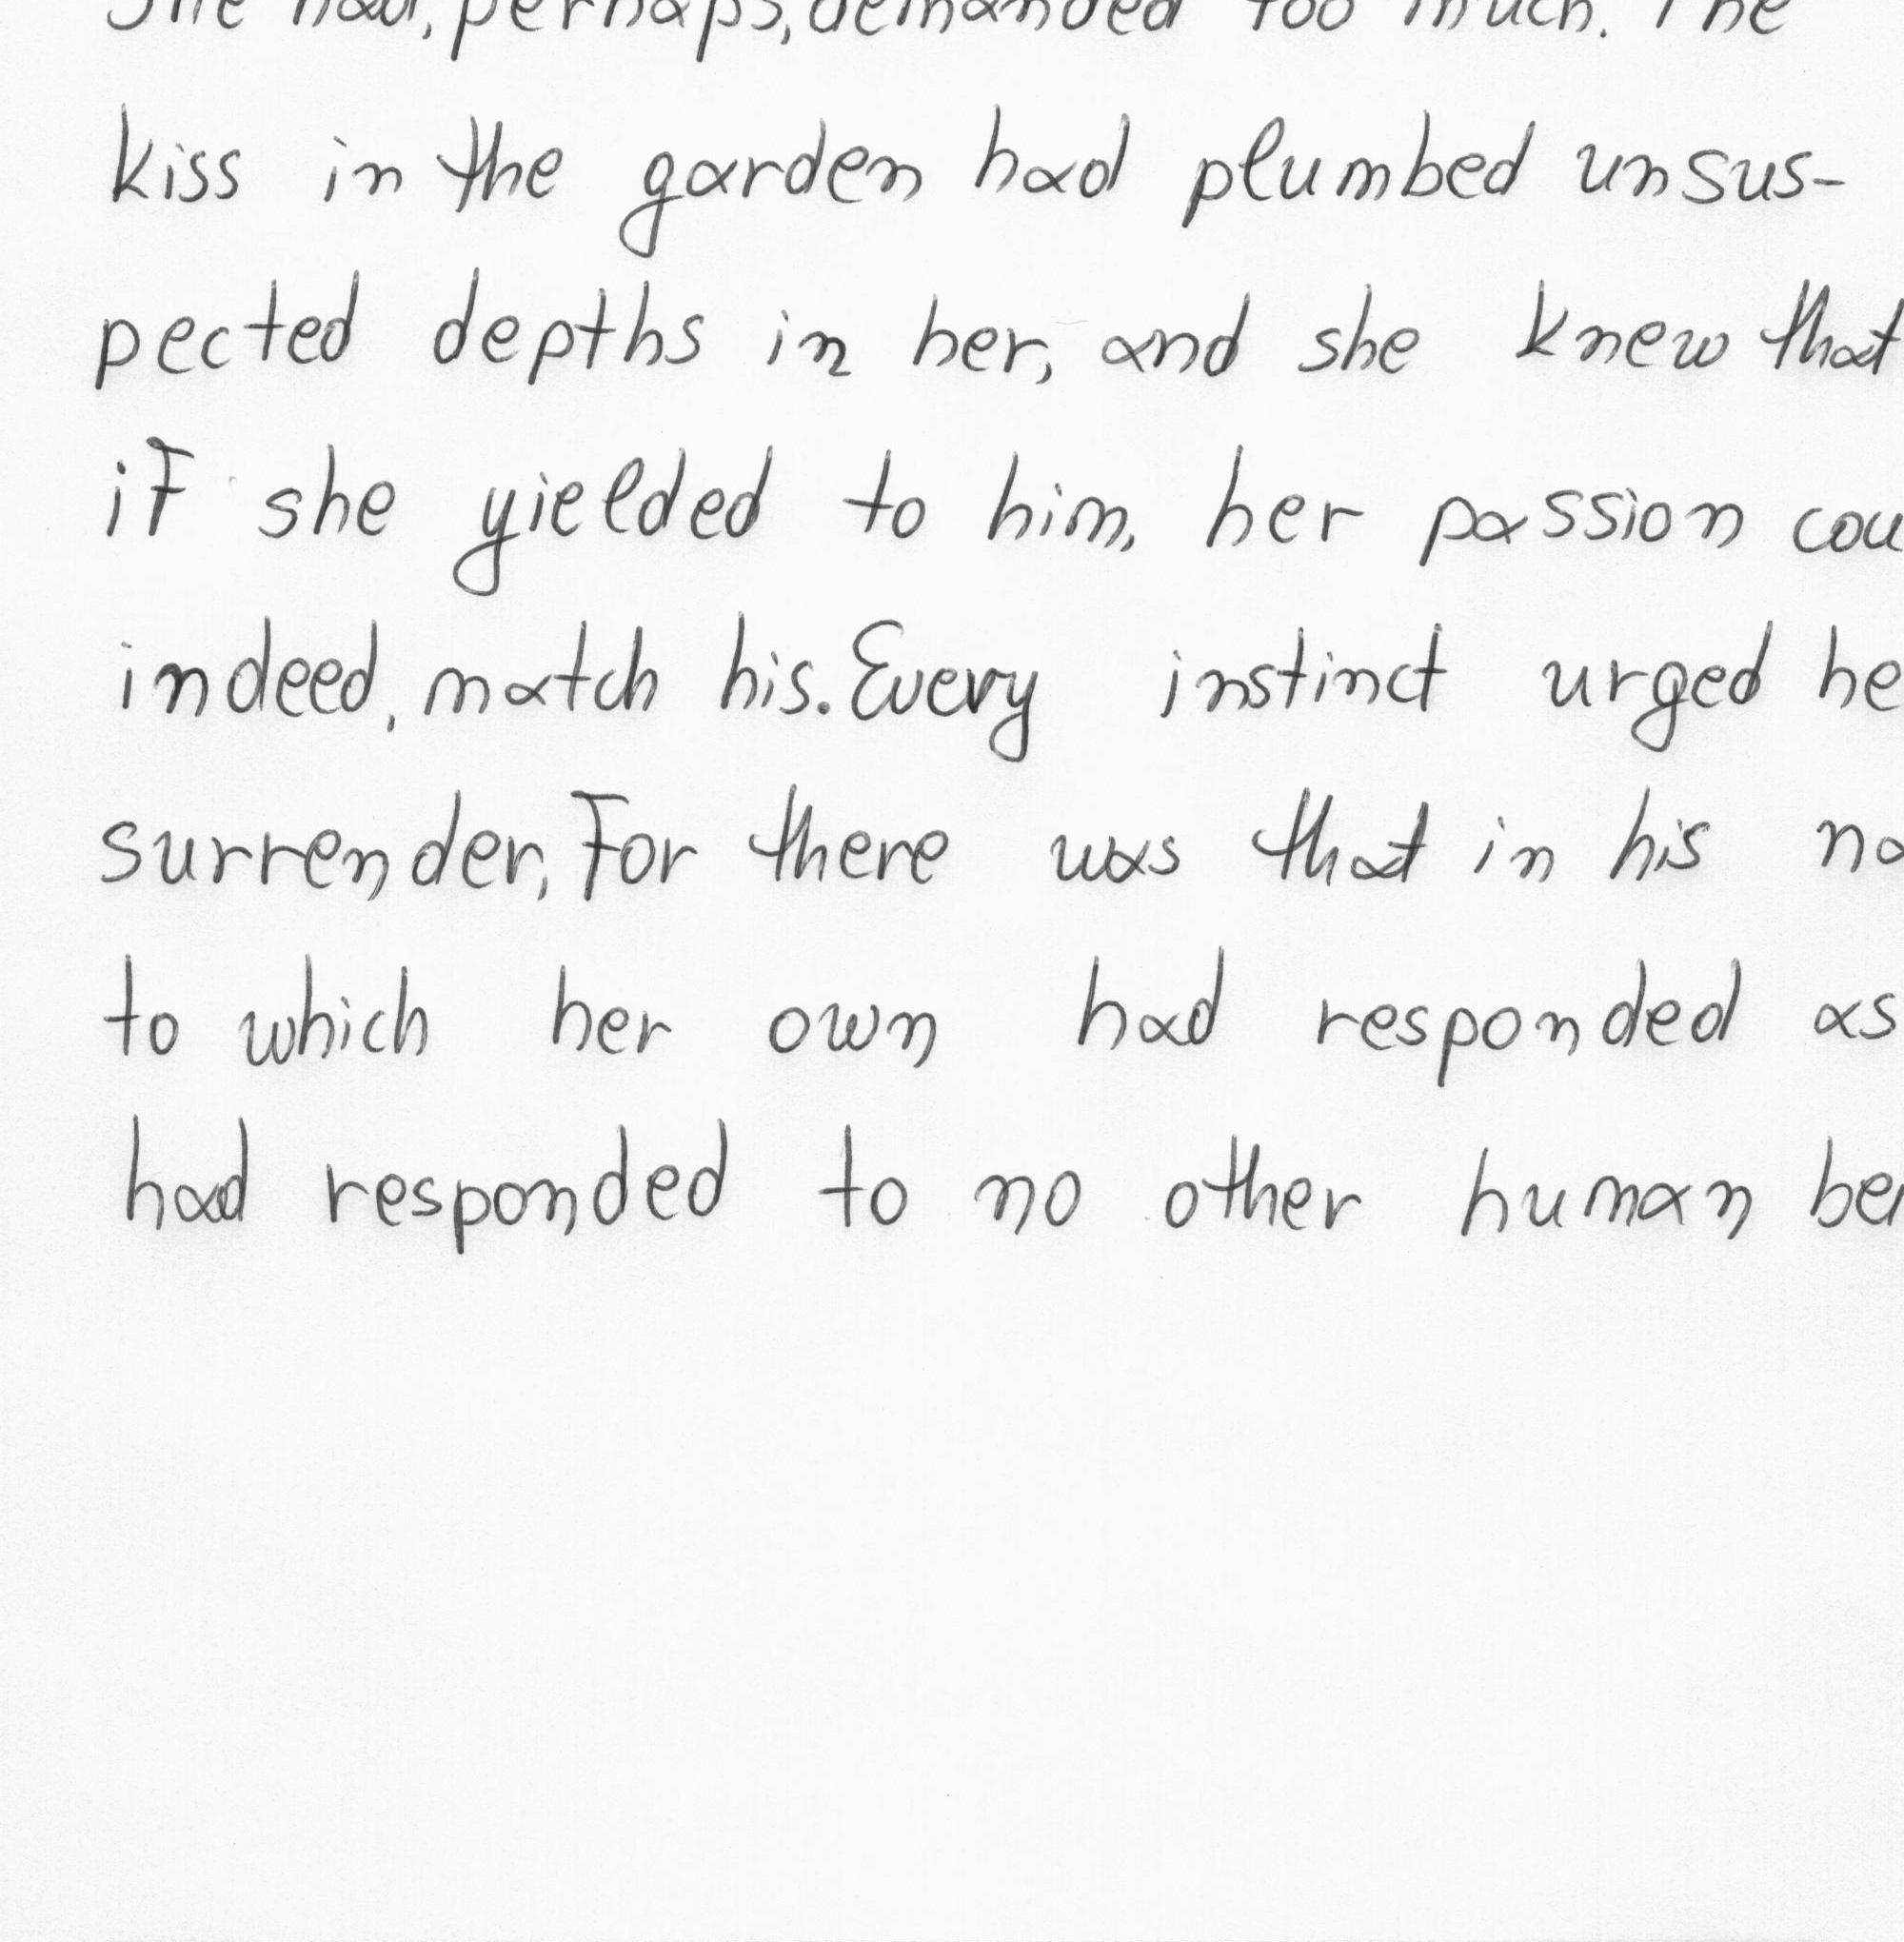 She had, perhaps, demanded too much. The
kiss in the garden had plumbed unsus-
pected depths in her, and she knew that
if she yielded to him, her passion
indeed, match his. Every instinct urged
surrender, For there was that in his
to which her own had responded as
had responded to no other human